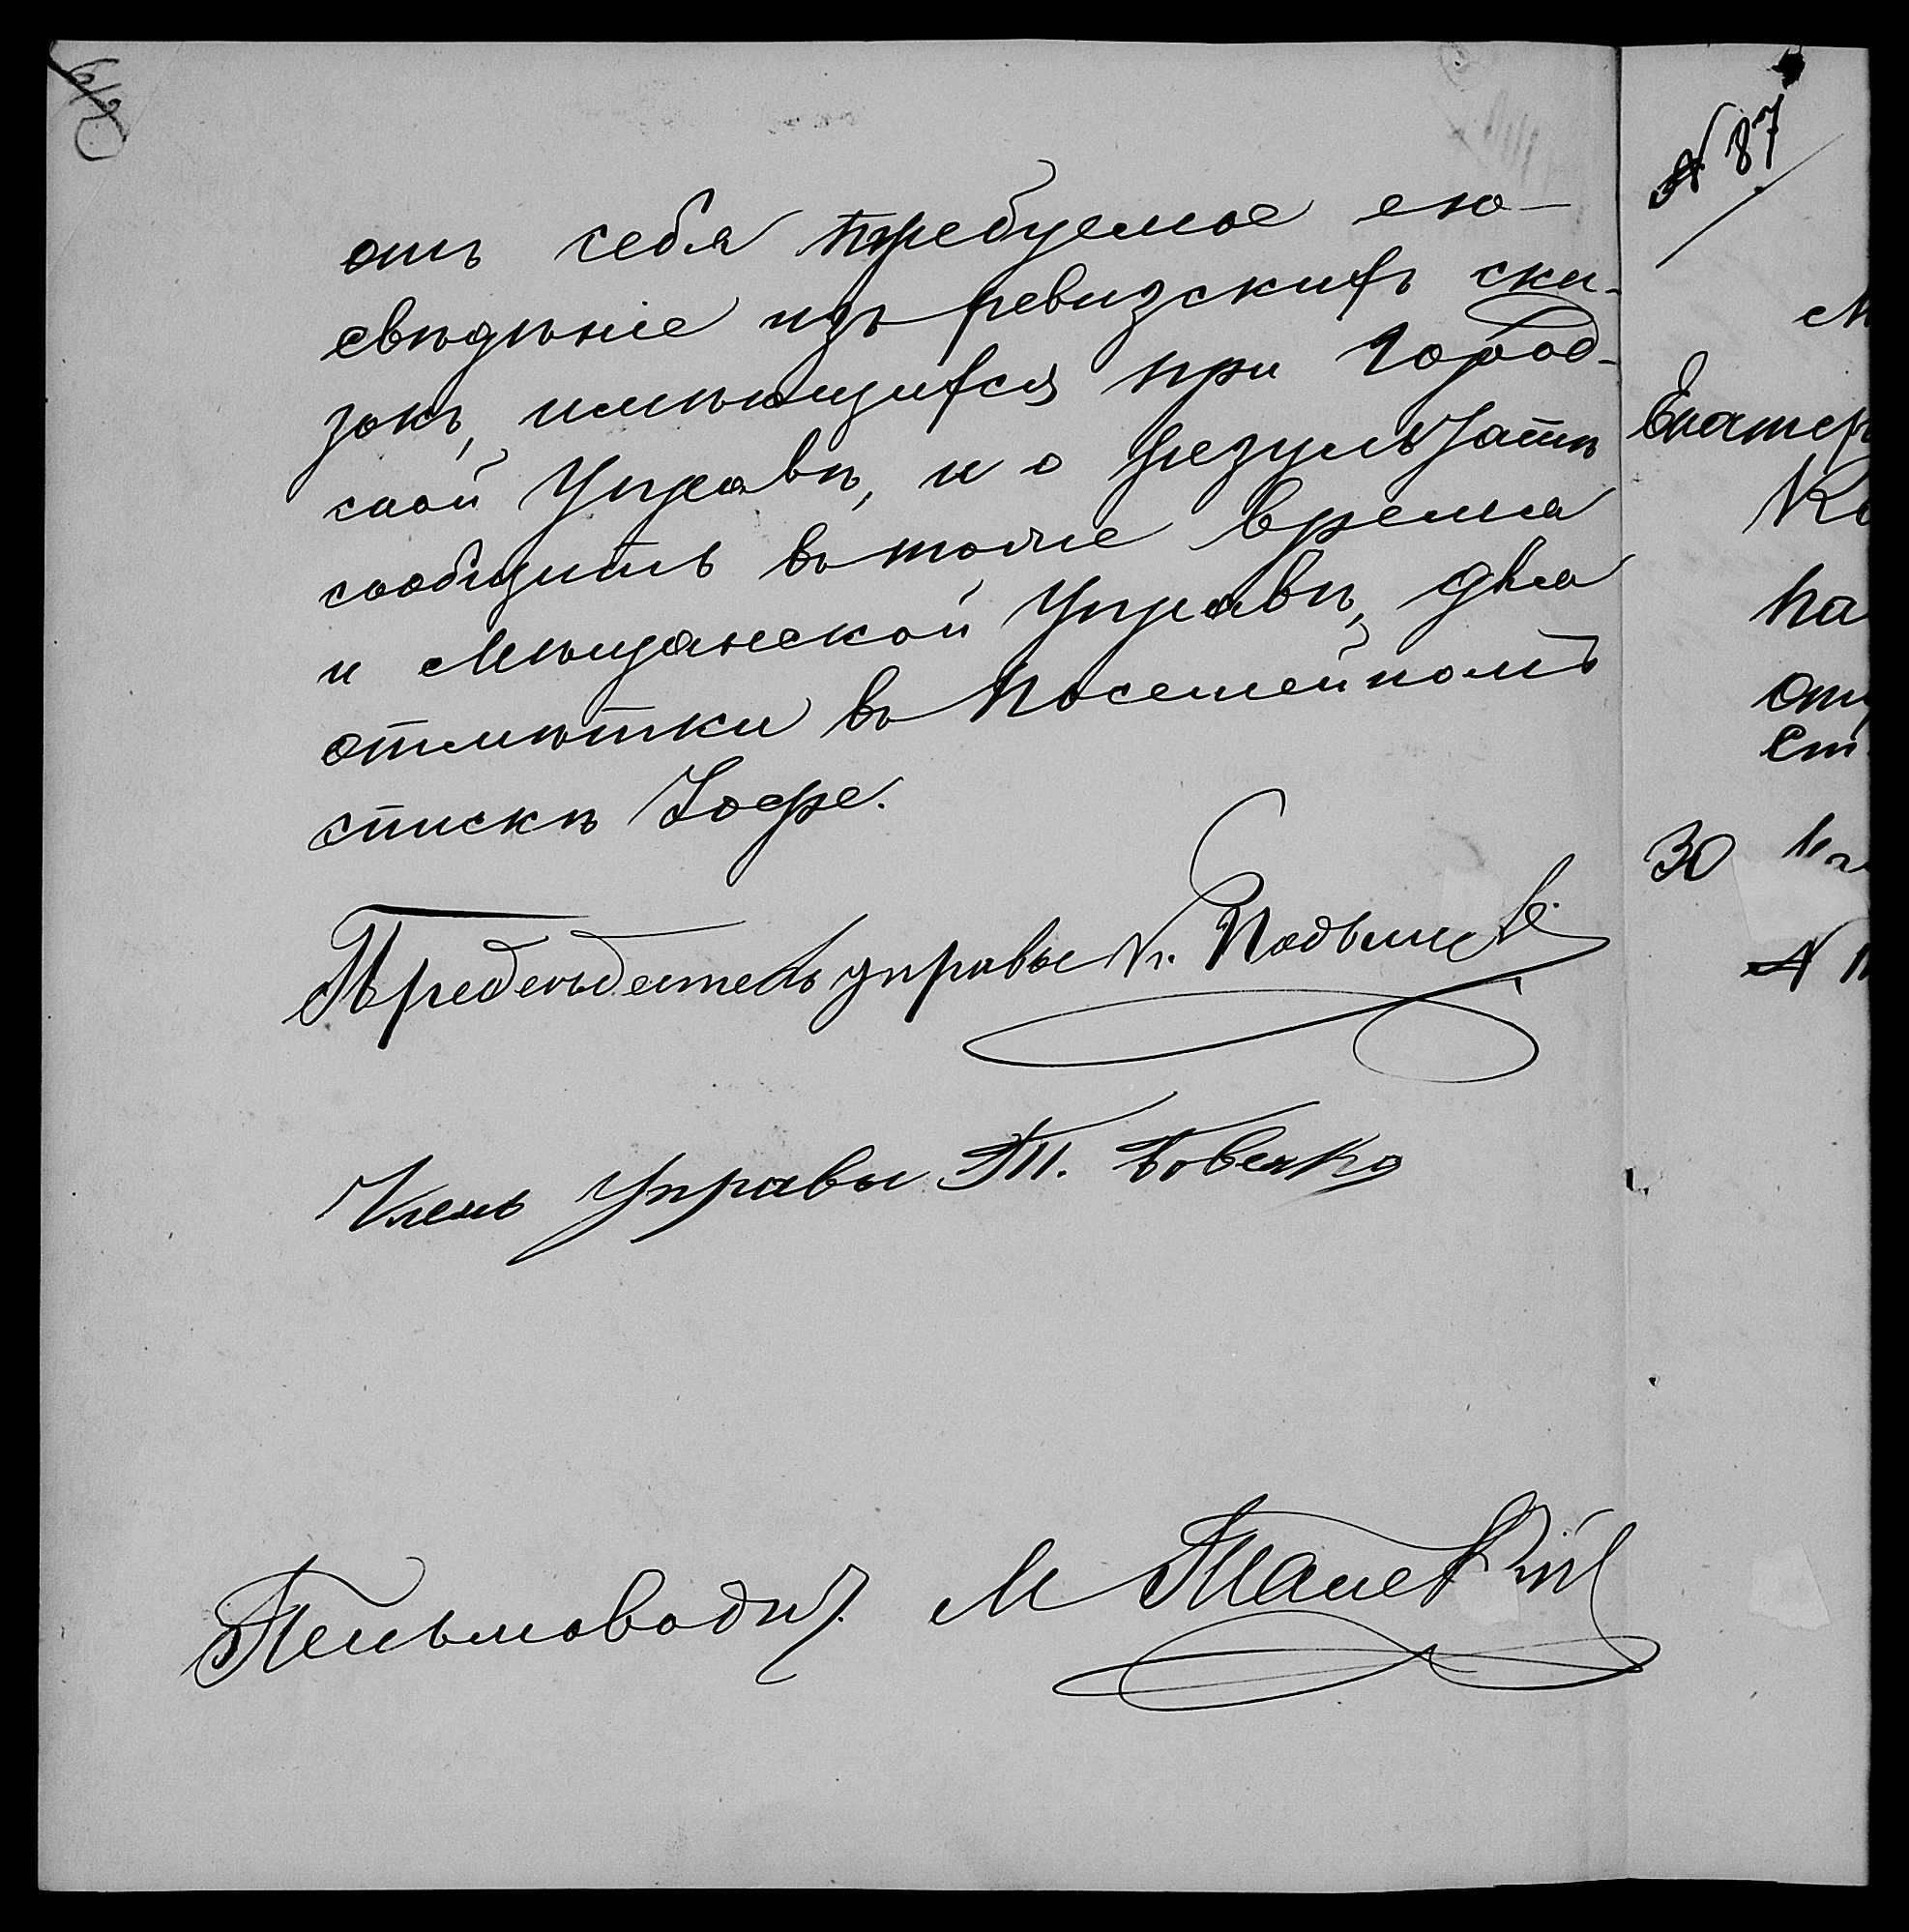 отъ себя требуемое ею
свѣдѣніе изъ ревизскихъ ска-
зокъ, имѣющихся при Город-
ской Управѣ, и о результатѣ
сообщить въ тоже время
и Мѣщанской Управѣ, для
отмѣтки въ посемейномъ
спискѣ Іофе.
Предсѣдатель управы
Членъ Управы
Письмоводит. М
№ 87
Екатер
на
30
№